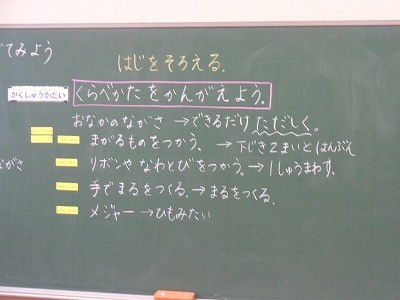 てみよう
はじをそろえる。
がくしゅうかだい
くらべかたをかんがえよう。
おなかのながさ →できるだけただしく。
まがるものをつかう。 →下じき2まいとはんぶん
ながさ
リボンやなわとびをつかう。→1しゅうまわす。
手でまるをつくる。→まるをつくる。
メジャー→ひもみたい